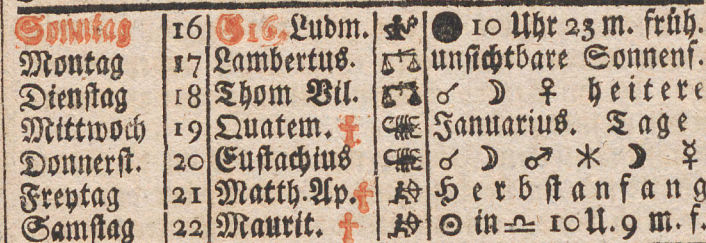 Sonntag 16 G16. Ludm. ● 10 Uhr 23 m. früh.
Montag 17 Lambertus. ♎ unsichtbare Sonnenf.
Dienstag 18 Thom Vil. ♎ ☌ ☽ ♀ heitere
Mittwoch 19 Quatem. † ♏ Januarius. Tage
Donnerst. 20 Eustachius ♏ ☌ ☽ ♂ ⚹ ☽ ☿
Freytag 21 Matth. Ap. † ♐ Herbstanfang
Samstag 22 Maurit. † ♐ ☉ in ♎ 10 U. 9 m. f.